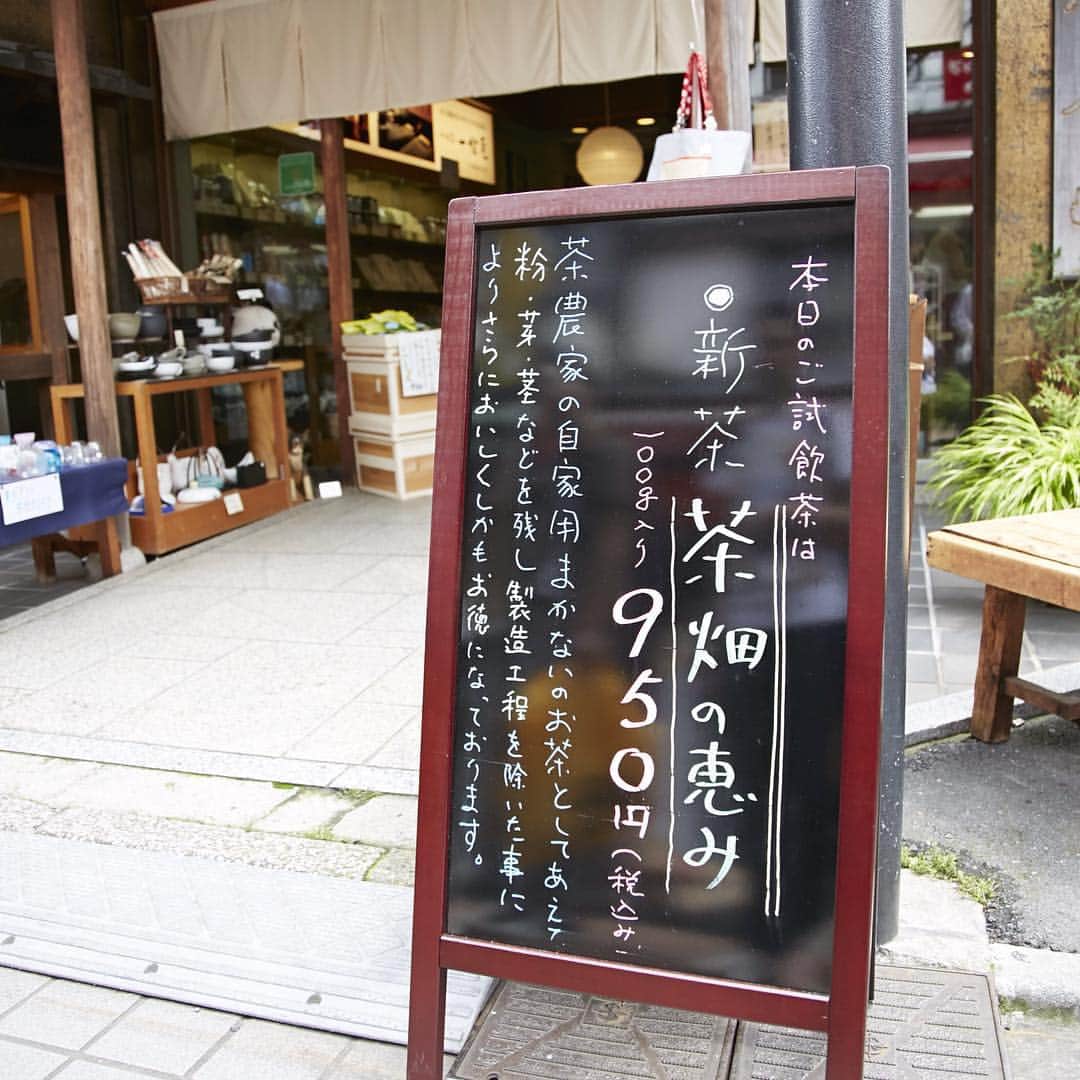 本日のご試飲茶は
◉新茶 茶畑の恵み
100g入り 950円(税込み)
茶農家の自家用まかないのお茶としてあえて
粉・芽・茎などを残し製造工程を除いた事に
よりさらにおいしくしかもお徳になっております。